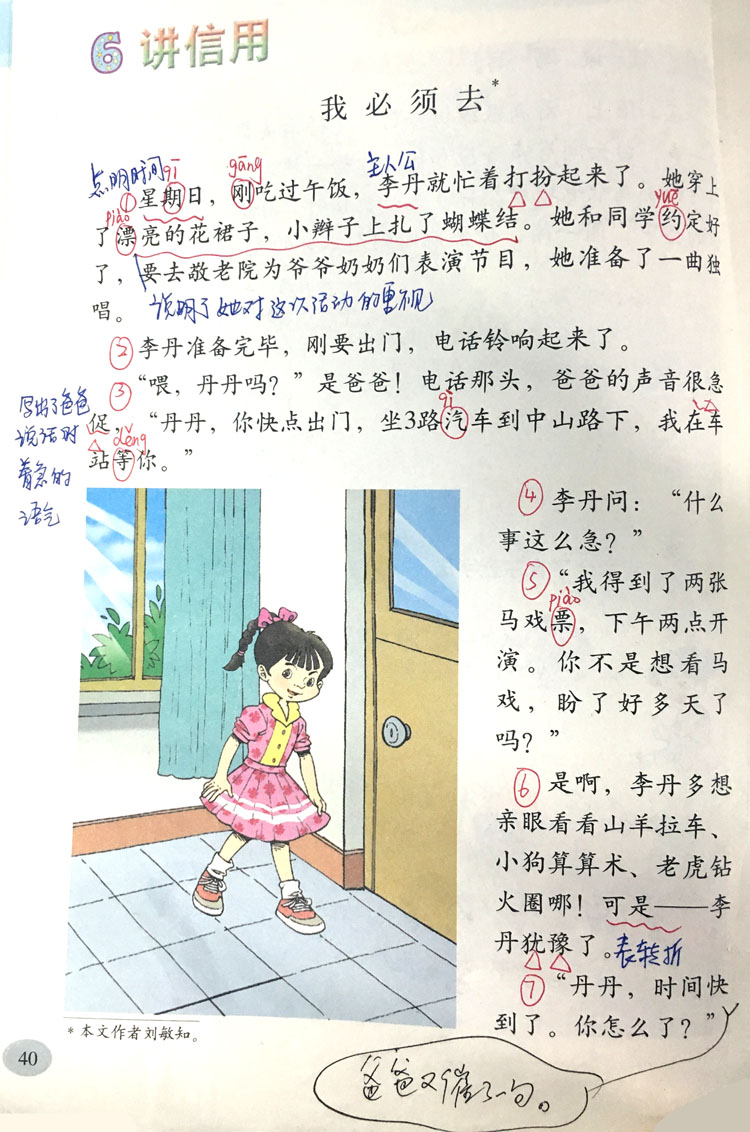 6 讲信用
我必须去*
点明时间 qī gāng 主人公
①星期日，刚吃过午饭，李丹就忙着打扮起来了。她穿上
piào yuē
了漂亮的花裙子，小辫子上扎了蝴蝶结。她和同学约定好
了，要去敬老院为爷爷奶奶们表演节目，她准备了一曲独
唱。 说明了她对这次活动的重视
②李丹准备完毕，刚要出门，电话铃响起来了。
③“喂，丹丹吗？”是爸爸！电话那头，爸爸的声音很急
qì
促，“丹丹，你快点出门，坐3路汽车到中山路下，我在车
děng
站等你。”
写出了爸爸
说话时
着急的
语气
④李丹问：“什么
事这么急？”
⑤“我得到了两张
piào
马戏票，下午两点开
演。你不是想看马
戏，盼了好多天了
吗？”
⑥是啊，李丹多想
亲眼看看山羊拉车、
小狗算算术、老虎钻
火圈哪！可是——李
丹犹豫了。表转折
⑦“丹丹，时间快
到了。你怎么了？”
*本文作者刘敏知。
40
爸爸又催了一句。